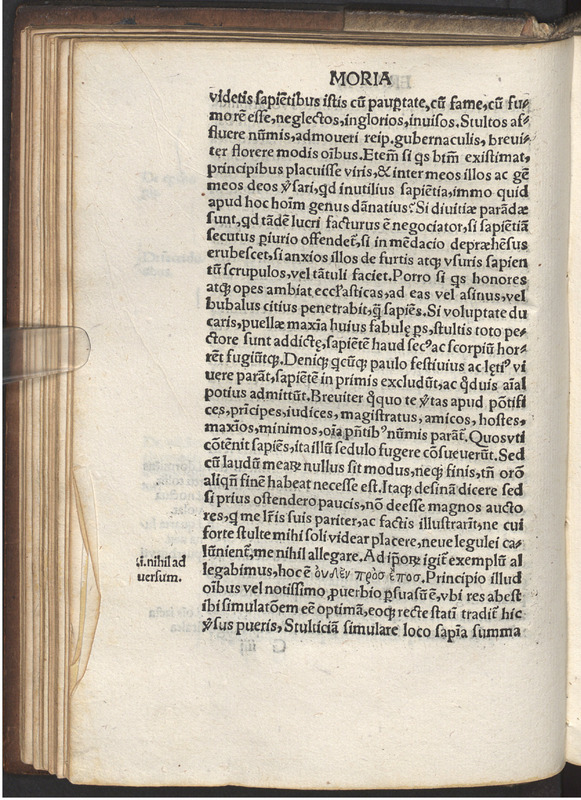 MORIA
videtis sapiẽtibus istis cũ paup̱tate, cũ fame, cũ fu⸗
mo rẽ esse, neglectos, inglorios, inuisos. Stultos af⸗
fluere nũmis, admoueri reip. gubernaculis, breui⸗
ter florere modis oĩbus. Etem̃ si qs btm̃ existimat,
principibus placuisse viris, & inter meos illos ac gẽ
meos deos ỹsari, qd inutilius sapiẽtia, immo quid
apud hoc hoĩm genus dãnatius? Si diuitiæ parãdæ
sunt, qd tãdẽ lucri facturus ẽ negociator, si sapiẽtiã
secutus ꝑiurio offendet̃, si in mẽdacio depræhẽsus
erubescet, si anxios illos de furtis atqꝫ vsuris sapien
tũ scrupulos, vel tãtuli faciet. Porro si qs honores
atqꝫ opes ambiat eccl̃asticas, ad eas vel asinus, vel
bubalus citius penetrabit, q̃ sapiẽs. Si voluptate du
caris, puellæ maxĩa huius fabulę ꝑs, stultis toto pe⸗
ctore sunt addictę, sapiẽtẽ haud secꝰ ac scorpiũ hor⸗
rẽt fugiũtqꝫ. Deniqꝫ qcũqꝫ paulo festiuius ac lętiꝰ vi
uere parãt, sapiẽtẽ in primis excludũt, ac q̃duis aĩal
potius admittũt. Breuiter q̃quo te ỹtas apud põtifi
ces, prĩcipes, iudices, magistratus, amicos, hostes,
maxĩos, minimos, oĩa pñtibꝰ nũmis parãt̃. Quos vti
cõtẽnit sapiẽs, ita illũ sedulo fugere cõsueuerũt. Sed
cũ laudũ mearꝝ nullus sit modus, neqꝫ finis, tñ orõ
aliqñ finẽ habeat necesse est. Itaqꝫ desinã dicere sed
si prius ostendero paucis, nõ deesse magnos aucto
res, q me lr̃is suis pariter, ac factis illustrarĩt, ne cui
forte stulte mihi soli videar placere, neue legulei ca⸗
lũnient̃, me nihil allegare. Ad ip̃orꝝ igit̃ exemplũ al
.i. nihil ad
uersum.
legabimus, hoc ẽ ὀυδὲν πρὸσ ἔποσ. Principio illud
oĩbus vel notissimo, ꝓuerbio ꝑsuasũ ẽ, vbi res abest
ibi simulatõem eẽ optimã, eoqꝫ recte statĩ tradit̃ hic
ỹsus pueris, Stulticiã simulare loco sapĩa summa